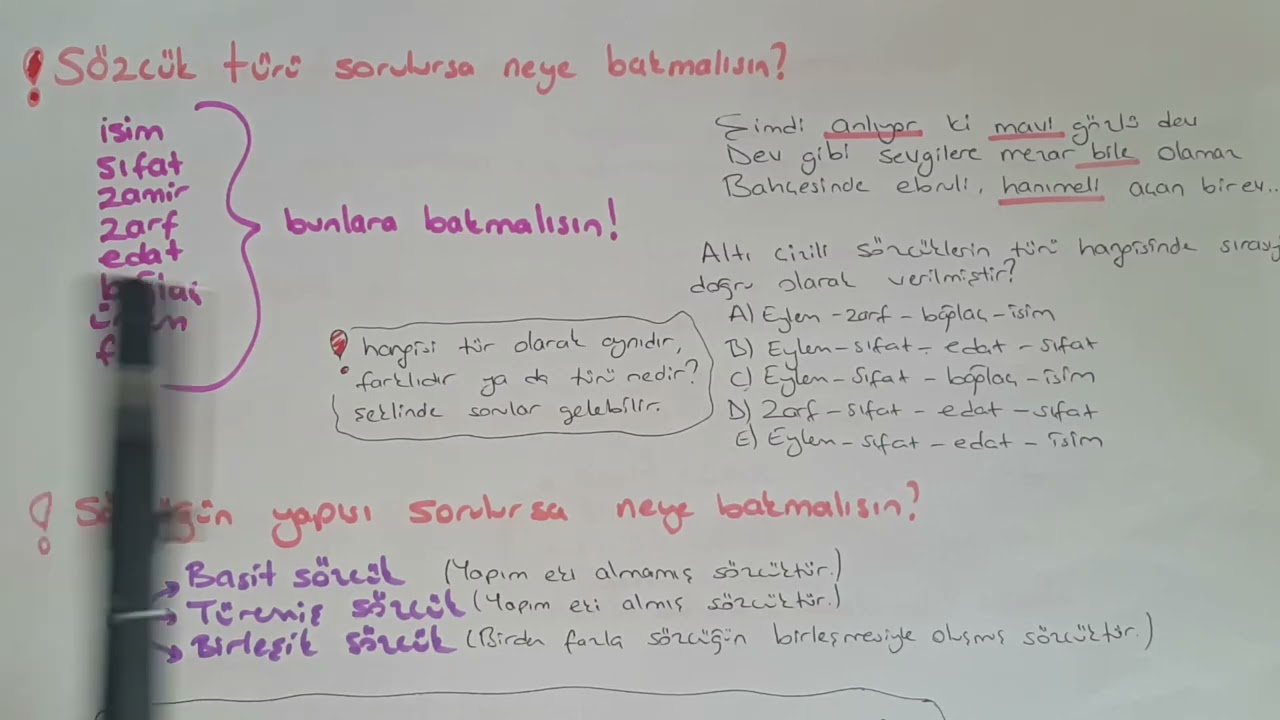 ! Sözcük türü sorulursa neye bakmalısın?
isim
sıfat
zamir
zarf
edat
bunlara bakmalısın!
! hangisi tür olarak aynıdır,
farklıdır ya da türü nedir?
şeklinde sorular gelebilir.
Şimdi anlıyor ki mavi gözlü dev
Dev gibi sevgilere mezar bile olamaz
Bahçesinde ebruli, hanımeli açan bir ev..
Altı çizili sözcüklerin türü hangisinde
doğru olarak verilmiştir?
A) Eylem - zarf - bağlaç - isim
B) Eylem - sıfat - edat - sıfat
C) Eylem - sıfat - bağlaç - isim
D) Zarf - sıfat - edat - sıfat
E) Eylem - sıfat - edat - isim
! yapısı sorulursa neye bakmalısın?
Basit sözcük (Yapım eki almamış sözcüktür.)
Türemiş sözcük (Yapım eki almış sözcüktür.)
Birleşik sözcük (Birden fazla sözcüğün birleşmesiyle oluşmuş sözcüktür.)